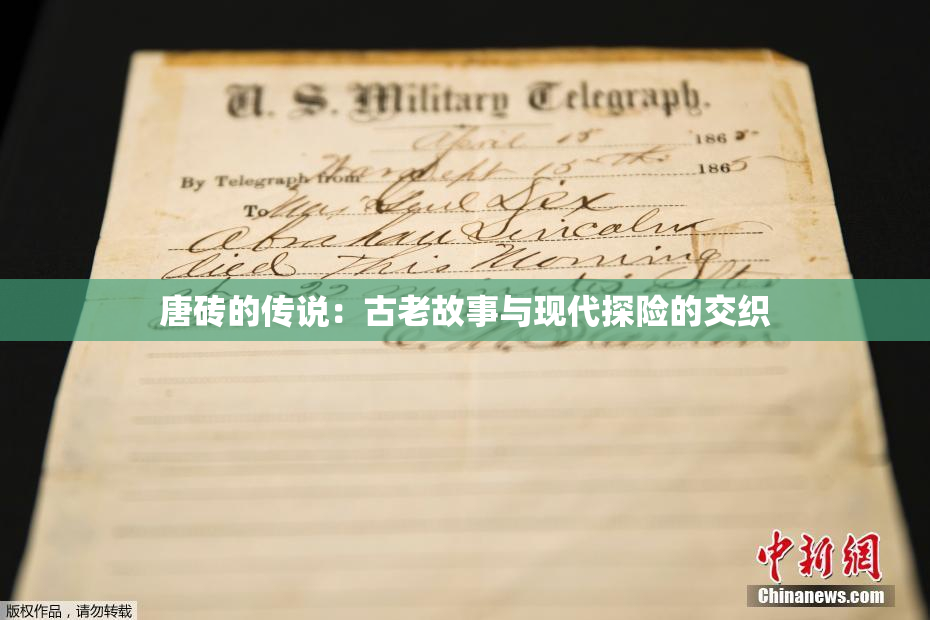 U. S. Military Telegraph.
April 15 1865
By Telegraph from War Dept 15th 1865
To Maj Genl Dix
Abraham Lincoln
died This Morning
at 22 minutes after
唐砖的传说：古老故事与现代探险的交织
E. M. Stanton
中新網
Chinanews.com
版权作品，请勿转载